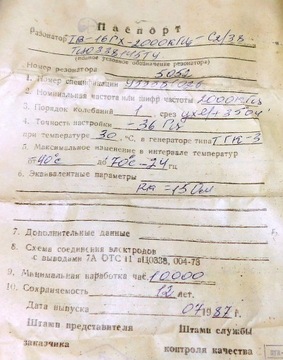 Паспорт
Резонатор ГВ-16ГХ-2000кГц-
(полное условное обозначение резонатора)
Номер резонатора 5052
1. Номер спецификации
2. Номинальная частота или шифр частоты 2000кГц
3. Порядок колебаний 1 срез
4. Точность настройки -36 Гц
при температуре 30 °С, в генераторе типа
5. Максимальное изменение в интервале температур
от до 70°С -24 гц
6. Эквивалентные параметры
7. Дополнительные данные
8. Схема соединения электродов
с выводами 7А ОТС 11 пЦ0338, 004-73
9. Минимальная наработка час. 10000
10. Сохраняемость 12 лет.
Дата выпуска 07 1987 г.
Штамп представителя Штамп службы
заказчика контроля качества